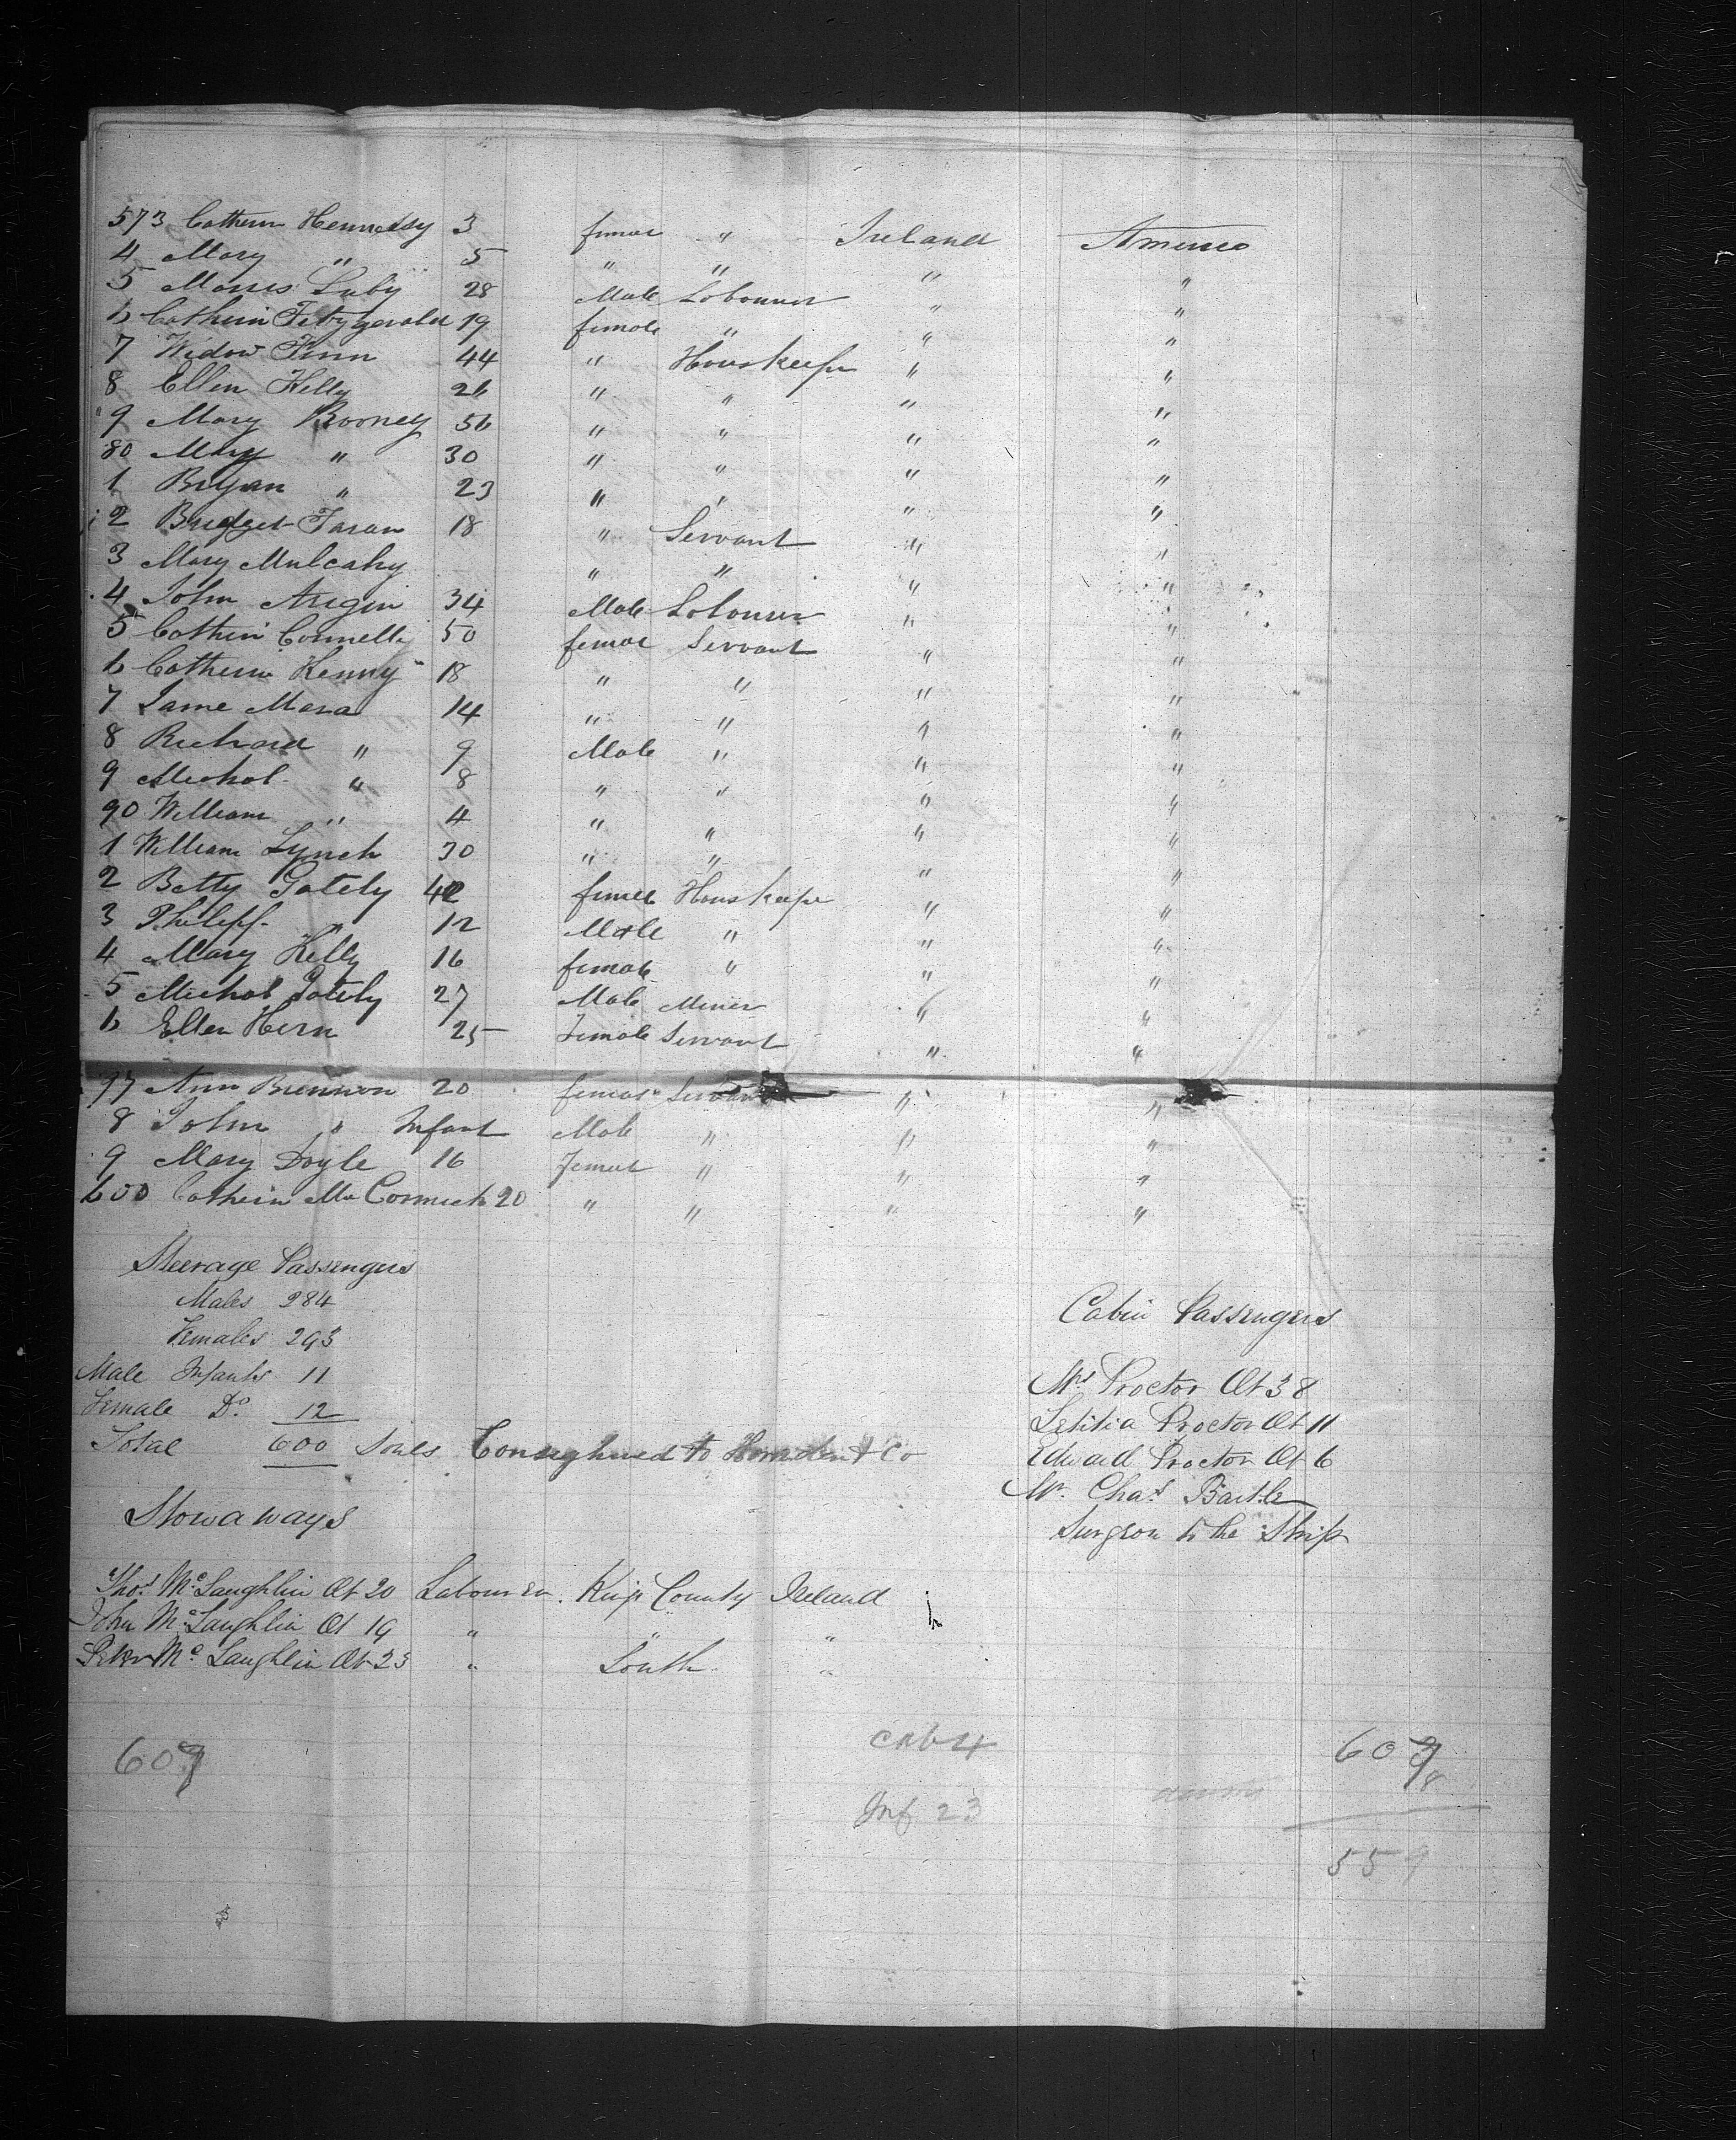 573 Cathern Hennessy 3 female " Ireland America
4 Mary " 5 " " " "
5 Morris Luby 28 Male Labourer " "
6 Cathern Fitzgerald 19 female " " "
7 Widow Finn 44 " Houskeeper " "
8 Ellen Kelly 26 " " " "
9 Mary Rooney 56 " " " "
80 Mary " 30 " " " "
1 Bryan " 23 " " " "
2 Bridget 18 " Servant " "
3 Mary Mulcahy " " " "
4 John 34 Male Labourer " "
5 Cathern Connelly 50 female Servant " "
6 Cathern Kenny 18 " " " "
7 Jame Mara 14 " " " "
8 Richard " 9 Male " " "
9 Michal " 8 " " " "
90 William " 4 " " " "
1 William Lynch 30 " " " "
2 Betty Gately 42 female Houskeeper " "
3 Philipp " 12 Male " " "
4 Mary Kelly 16 female " " "
5 Michal Gately 27 Male Miner " "
6 Ellen Hern 25 Female Servant " "
97 Ann Brennon 20 female Servant " "
8 John " Infant Male " " "
9 Mary Doyle 16 Female " " "
600 Cathern Mc Cormick 20 " " " "
Steerage Passengers
Males 284
Females 293
Male Infants 11
Female Do. 12
Total 600 Souls Consighned to & Co
Cabin Passengers
Mrs Proctor At 38
Letitia Proctor At 11
Edward Proctor At 6
Mr. Chas
Surgeon to the Ship
Stowaways
Thos Mc Laughlin At 20 Labourer. Kings County Ireland
John Mc Laughlin At 19 " " "
Peter Mc Laughlin At 23 " Louth "
607
Cab 4
Inf 23
607
8
559